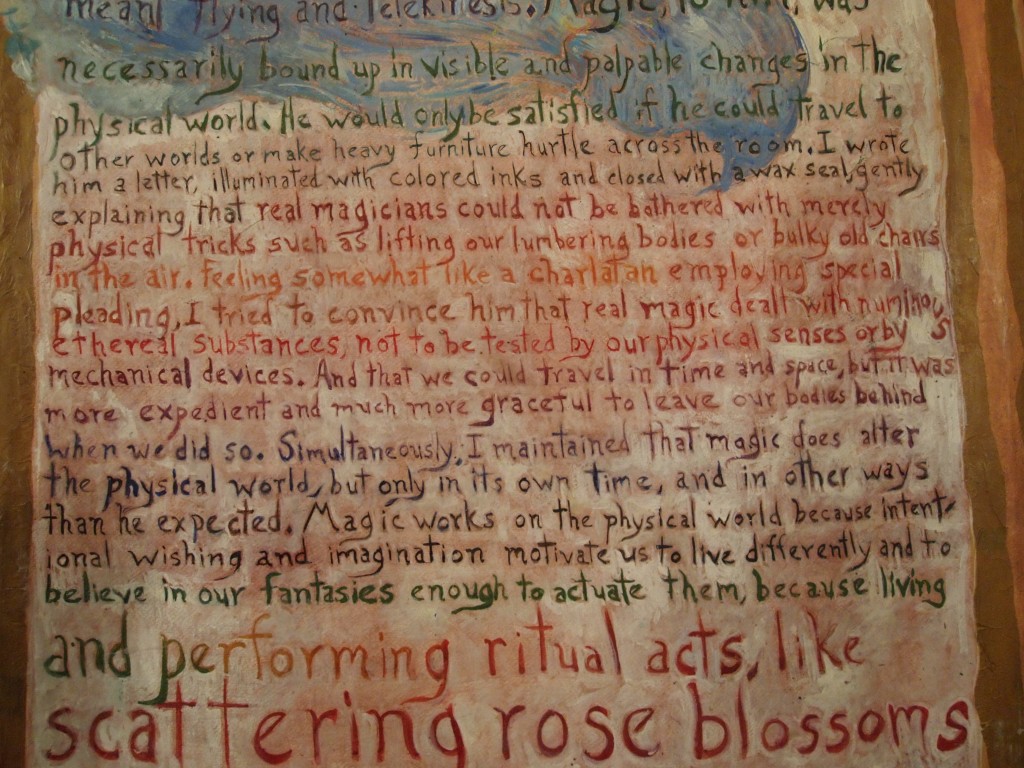 meant flying and telekinesis. Magic, to him, was
necessarily bound up in visible and palpable changes in the
physical world. He would only be satisfied if he could travel to
other worlds or make heavy furniture hurtle across the room. I wrote
him a letter, illuminated with colored inks and closed with a wax seal, gently
explaining that real magicians could not be bothered with merely
physical tricks such as lifting our lumbering bodies or bulky old chairs
in the air. Feeling somewhat like a charlatan employing special
pleading, I tried to convince him that real magic dealt with numinous
ethereal substances, not to be tested by our physical senses or by
mechanical devices. And that we could travel in time and space, but it was
more expedient and much more graceful to leave our bodies behind
when we did so. Simultaneously, I maintained that magic does alter
the physical world, but only in its own time, and in other ways
than he expected. Magic works on the physical world because intent-
ional wishing and imagination motivate us to live differently and to
believe in our fantasies enough to actuate them, because living
and performing ritual acts, like
scattering rose blossoms